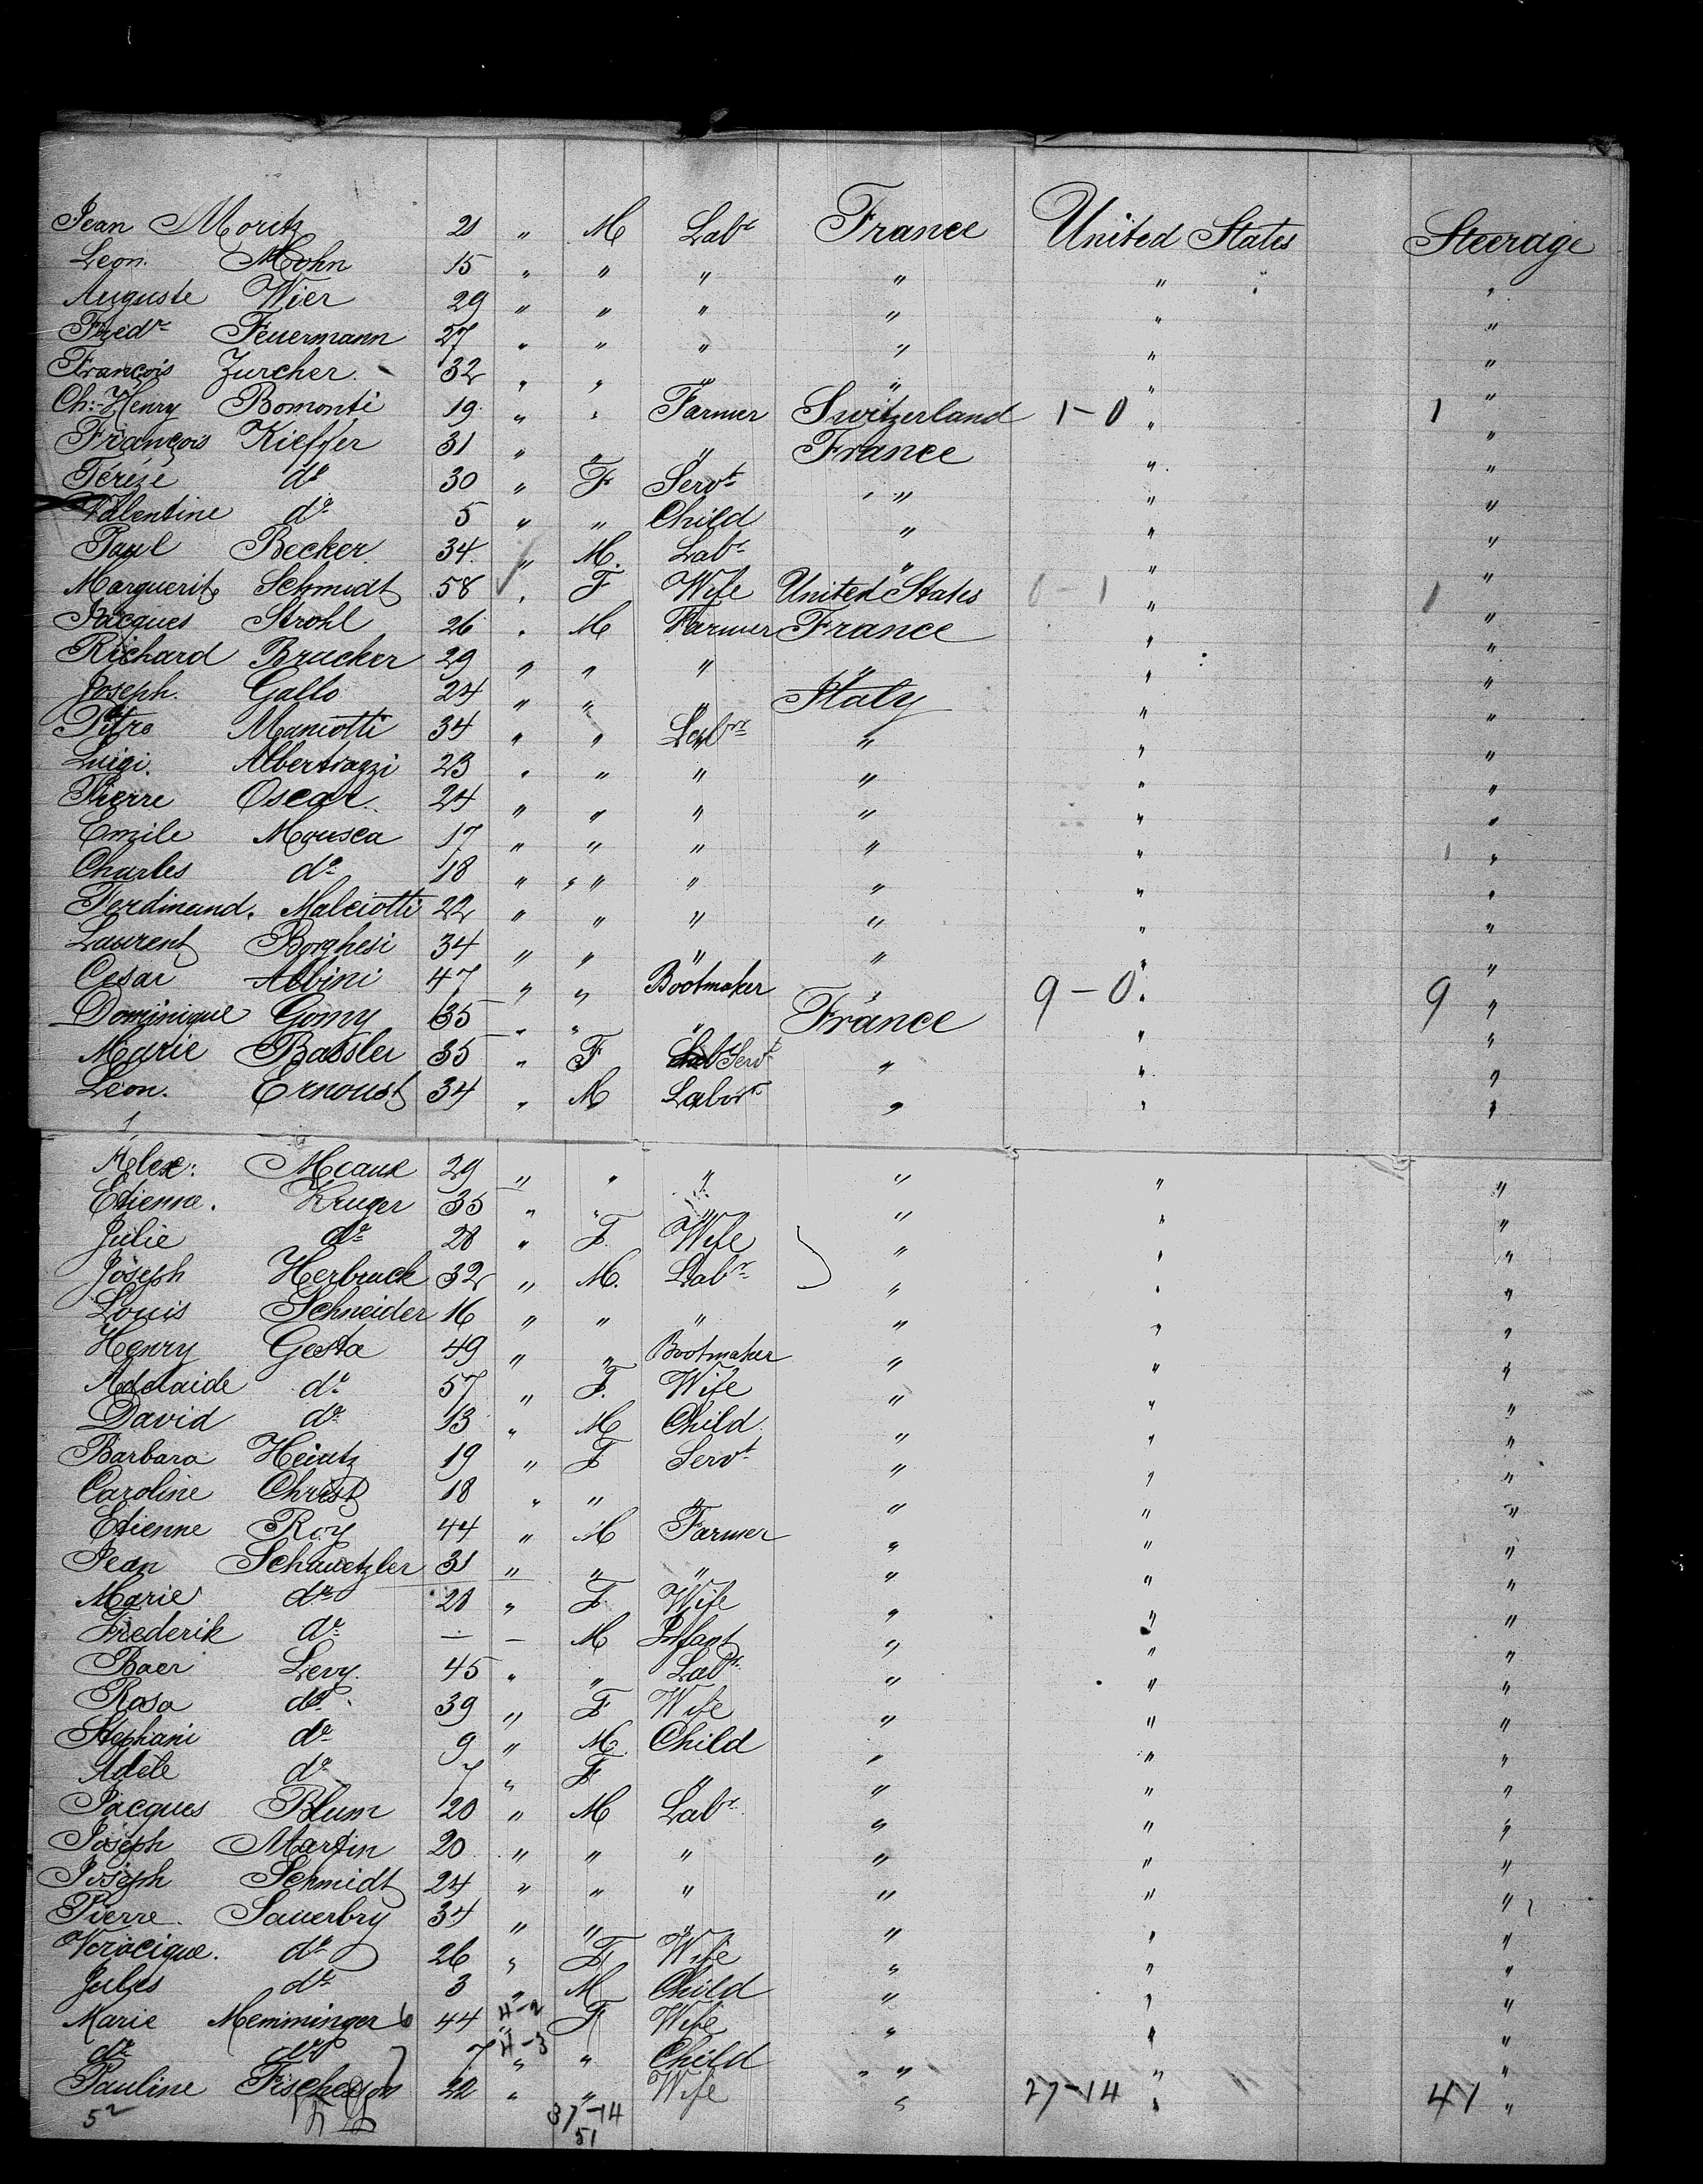 Jean Moritz 21 " M Labr France United States Steerage
Leon. Mohn 15 " " " " " "
Auguste Wier 29 " " " " " "
Fredr Feuermann 27 " " " " " "
François Zurcher 32 " " " " " "
Ch:-Henry Bomonti 19 " " Farmer Switzerland 1-0 " 1 "
François Kieffer 31 " " " France " "
Térése do 30 " F Servt " " "
Valentine do 5 " " Child " " "
Paul Becker 34 " M. Labr " " "
Marguerite Schmidt 58 " F Wife United States 0-1 " 1 "
Jacques Strohl 26 " M Farmer France " "
Richard Brucker 29 " " " " " "
Joseph. Gallo 24 " " " Italy " "
Pitro Manciotti 34 " " Labr " " "
Luigi. Albertrazzi 23 " " " " " "
Pierre Oscar 24 " " " " " "
Emile Mousca 17 " " " " " "
Charles do 18 " " " " " "
Ferdinand. Malciotti 22 " " " " " "
Laurent Borghesi 34 " " " " " "
Cesar Albini 47 " " Bootmaker " 9-0 " 9 "
Dominique Gomy 35 " " " France " "
Marie Bassler 35 " F Servt " " "
Leon. Ernoust 34 " M Labor " " "
Alex: Meaux 29 " " " " " "
Etienne. Kruger 35 " " " " " "
Julie do 28 " F. Wife " " "
Joseph Herbruck 32 " M. Labr " " "
Louis Schneider 16 " " " " " "
Henry Gesta 49 " " Bootmaker " " "
Adelaide do 57 " F. Wife " " "
David do 13 " M Child " " "
Barbara Heintz 19 " F Servt " " "
Caroline Christ 18 " " " " " "
Etienne Roy 44 " M Farmer " " "
Jean Schwetzler 31 " " " " " "
Marie do 28 " F Wife " " "
Frederik do — — M Infant " " "
Baer Levy 45 " " Labr " " "
Rosa do 39 " F Wife " " "
Stephani do 9 " M. Child " " "
Adèle do 7 " F " " " "
Jacques Blum 20 " M Labr " " "
Joseph Martin 20 " " " " " "
Joseph Schmidt 24 " " " " " "
Pierre Sauerbry 34 " " " " " "
Verocique. do 26 " F Wife " " "
Jules do 3 " M Child " " "
Marie Memminger 44 " F Wife " " "
do do 7 " " Child " " "
Pauline 22 " " Wife " 27-14 " 41 "
52 37-14
51